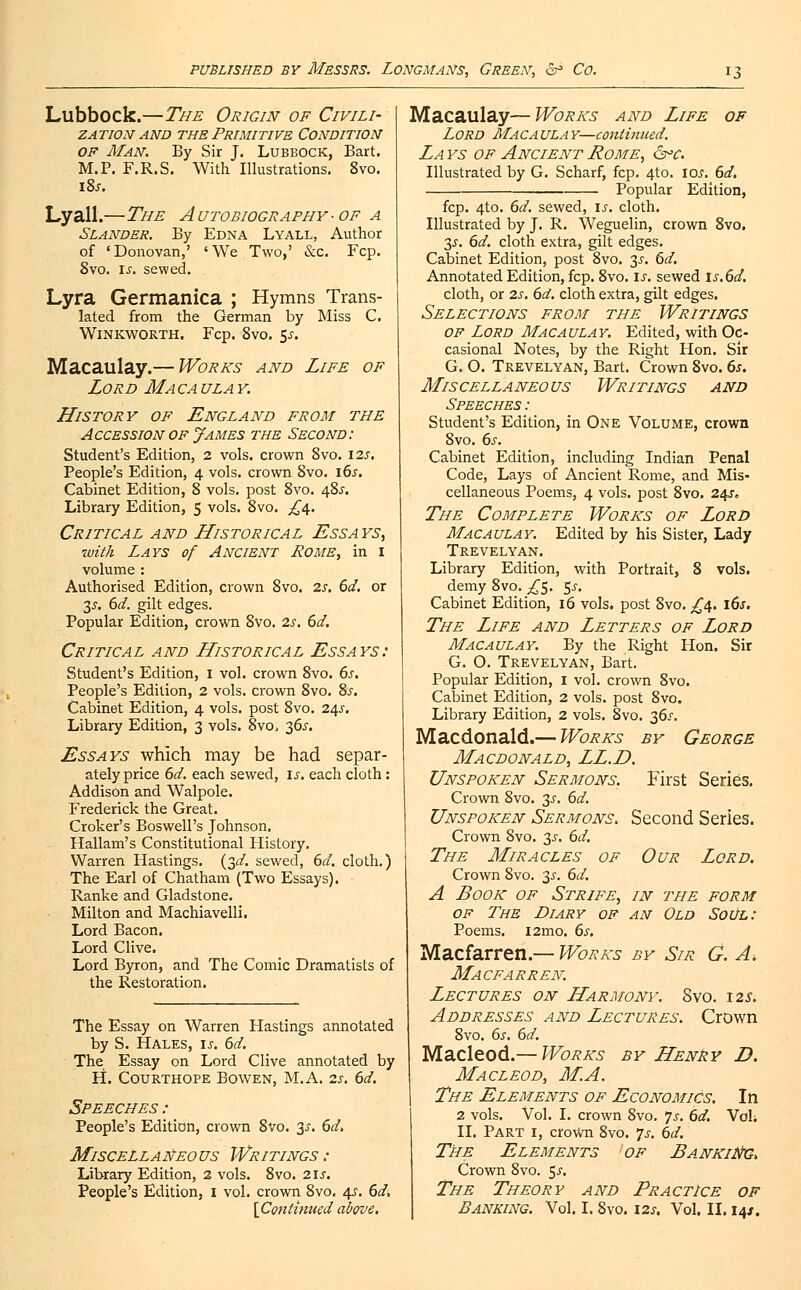 PUBLISHED BY MESSRS. LONGMANS, GREEN, & CO. 13
Lubbock.—THE ORIGIN OF CIVILI-
ZATION AND THE PRIMITIVE CONDITION
OF MAN. By Sir J. LUBBOCK, Bart.
M.P. F.R.S. With Illustrations. 8vo.
18s.
Lyall.—THE AUTOBIOGRAPHY OF A
SLANDER. By EDNA LYALL, Author
of ‘Donovan,’ ‘We Two,’ &c. Fcp.
8vo. 1s. sewed.
Lyra Germanica ; Hymns Trans-
lated from the German by Miss C.
WINKWORTH. Fcp. 8vo. 5s.
Macaulay.—WORKS AND LIFE OF
LORD MACAULAY.
HISTORY OF ENGLAND FROM THE
ACCESSION OF JAMES THE SECOND:
Student’s Edition, 2 vols. crown 8vo. 12s.
People’s Edition, 4 vols. crown 8vo. 16s.
Cabinet Edition, 8 vols. post 8vo. 48s.
Library Edition, 5 vols. 8vo. £4.
CRITICAL AND HISTORICAL ESSAYS,
with LAYS of ANCIENT ROME, in 1
volume :
Authorised Edition, crown 8vo. 2s. 6d. or
3s. 6d. gilt edges.
Popular Edition, crown 8vo. 2s. 6d.
CRITICAL AND HISTORICAL ESSAYS:
Student’s Edition, 1 vol. crown 8vo. 6s.
People’s Edition, 2 vols. crown 8vo. 8s.
Cabinet Edition, 4 vols. post 8vo. 24s.
Library Edition, 3 vols. 8vo. 36s.
ESSAYS which may be had separ-
ately price 6d. each sewed, 1s. each cloth :
Addison and Walpole.
Frederick the Great.
Croker’s Boswell’s Johnson.
Hallam’s Constitutional History.
Warren Hastings. (3d. sewed, 6d. cloth.)
The Earl of Chatham (Two Essays).
Ranke and Gladstone.
Milton and Machiavelli.
Lord Bacon.
Lord Clive.
Lord Byron, and The Comic Dramatists of
the Restoration.
The Essay on Warren Hastings annotated
by S. HALES, 1s. 6d.
The Essay on Lord Clive annotated by
H. COURTHOPE BOWEN, M.A. 2s. 6d.
SPEECHES :
People’s Edition, crown 8vo. 3s. 6d.
MISCELLANEOUS WRITINGS :
Library Edition, 2 vols. 8vo. 21s.
People’s Edition, 1 vol. crown 8vo. 4s. 6d.
[Continued above.
Macaulay—WORKS AND LIFE OF
LORD MACAULAY—continued.
LAYS OF ANCIENT ROME, &c.
Illustrated by G. Scharf, fcp. 4to. 10s. 6d.
——— Popular Edition,
fcp. 4to. 6d. sewed, 1s. cloth.
Illustrated by J. R. Weguelin, crown 8vo.
3s. 6d. cloth extra, gilt edges.
Cabinet Edition, post 8vo. 3s. 6d.
Annotated Edition, fcp. 8vo. 1s. sewed 1s. 6d.
cloth, or 2s. 6d. cloth extra, gilt edges.
SELECTIONS FROM THE WRITINGS
OF LORD MACAULAY. Edited, with Oc-
casional Notes, by the Right Hon. Sir
G. O. TREVELYAN, Bart. Crown 8vo. 6s.
MISCELLANEOUS WRITINGS AND
SPEECHES :
Student’s Edition, in ONE VOLUME, crown
8vo. 6s.
Cabinet Edition, including Indian Penal
Code, Lays of Ancient Rome, and Mis-
cellaneous Poems, 4 vols. post 8vo. 24s.
THE COMPLETE WORKS OF LORD
MACAULAY. Edited by his Sister, Lady
TREVELYAN.
Library Edition, with Portrait, 8 vols.
demy 8vo. £5. 5s.
Cabinet Edition, 16 vols. post 8vo. £4. 16s.
THE LIFE AND LETTERS OF LORD
MACAULAY. By the Right Hon. Sir
G. O. TREVELYAN, Bart.
Popular Edition, 1 vol. crown 8vo.
Cabinet Edition, 2 vols. post 8vo.
Library Edition, 2 vols. 8vo. 36s.
Macdonald.—WORKS BY GEORGE
MACDONALD, LL.D.
UNSPOKEN SERMONS. First Series.
Crown 8vo. 3s. 6d.
UNSPOKEN SERMONS. Second Series.
Crown 8vo. 3s. 6d.
THE MIRACLES OF OUR LORD.
Crown 8vo. 3s. 6d.
A BOOK OF STRIFE, IN THE FORM
OF THE DIARY OF AN OLD SOUL:
Poems. 12mo. 6s.
Macfarren.—WORKS BY SIR G. A.
MACFARREN.
LECTURES ON HARMONY. 8vo. 12s.
ADDRESSES AND LECTURES. Crown
8vo. 6s. 6d.
Macleod.—WORKS BY HENRY D.
MACLEOD, M.A.
THE ELEMENTS OF ECONOMICS. In
2 vols. Vol. I. crown 8vo. 7s. 6d. Vol.
II. PART 1, crown 8vo. 7s. 6d.
THE ELEMENTS OF BANKING.
Crown 8vo. 5s.
THE THEORY AND PRACTICE OF
BANKING. Vol. I. 8vo. 12s. Vol. II. 14s.